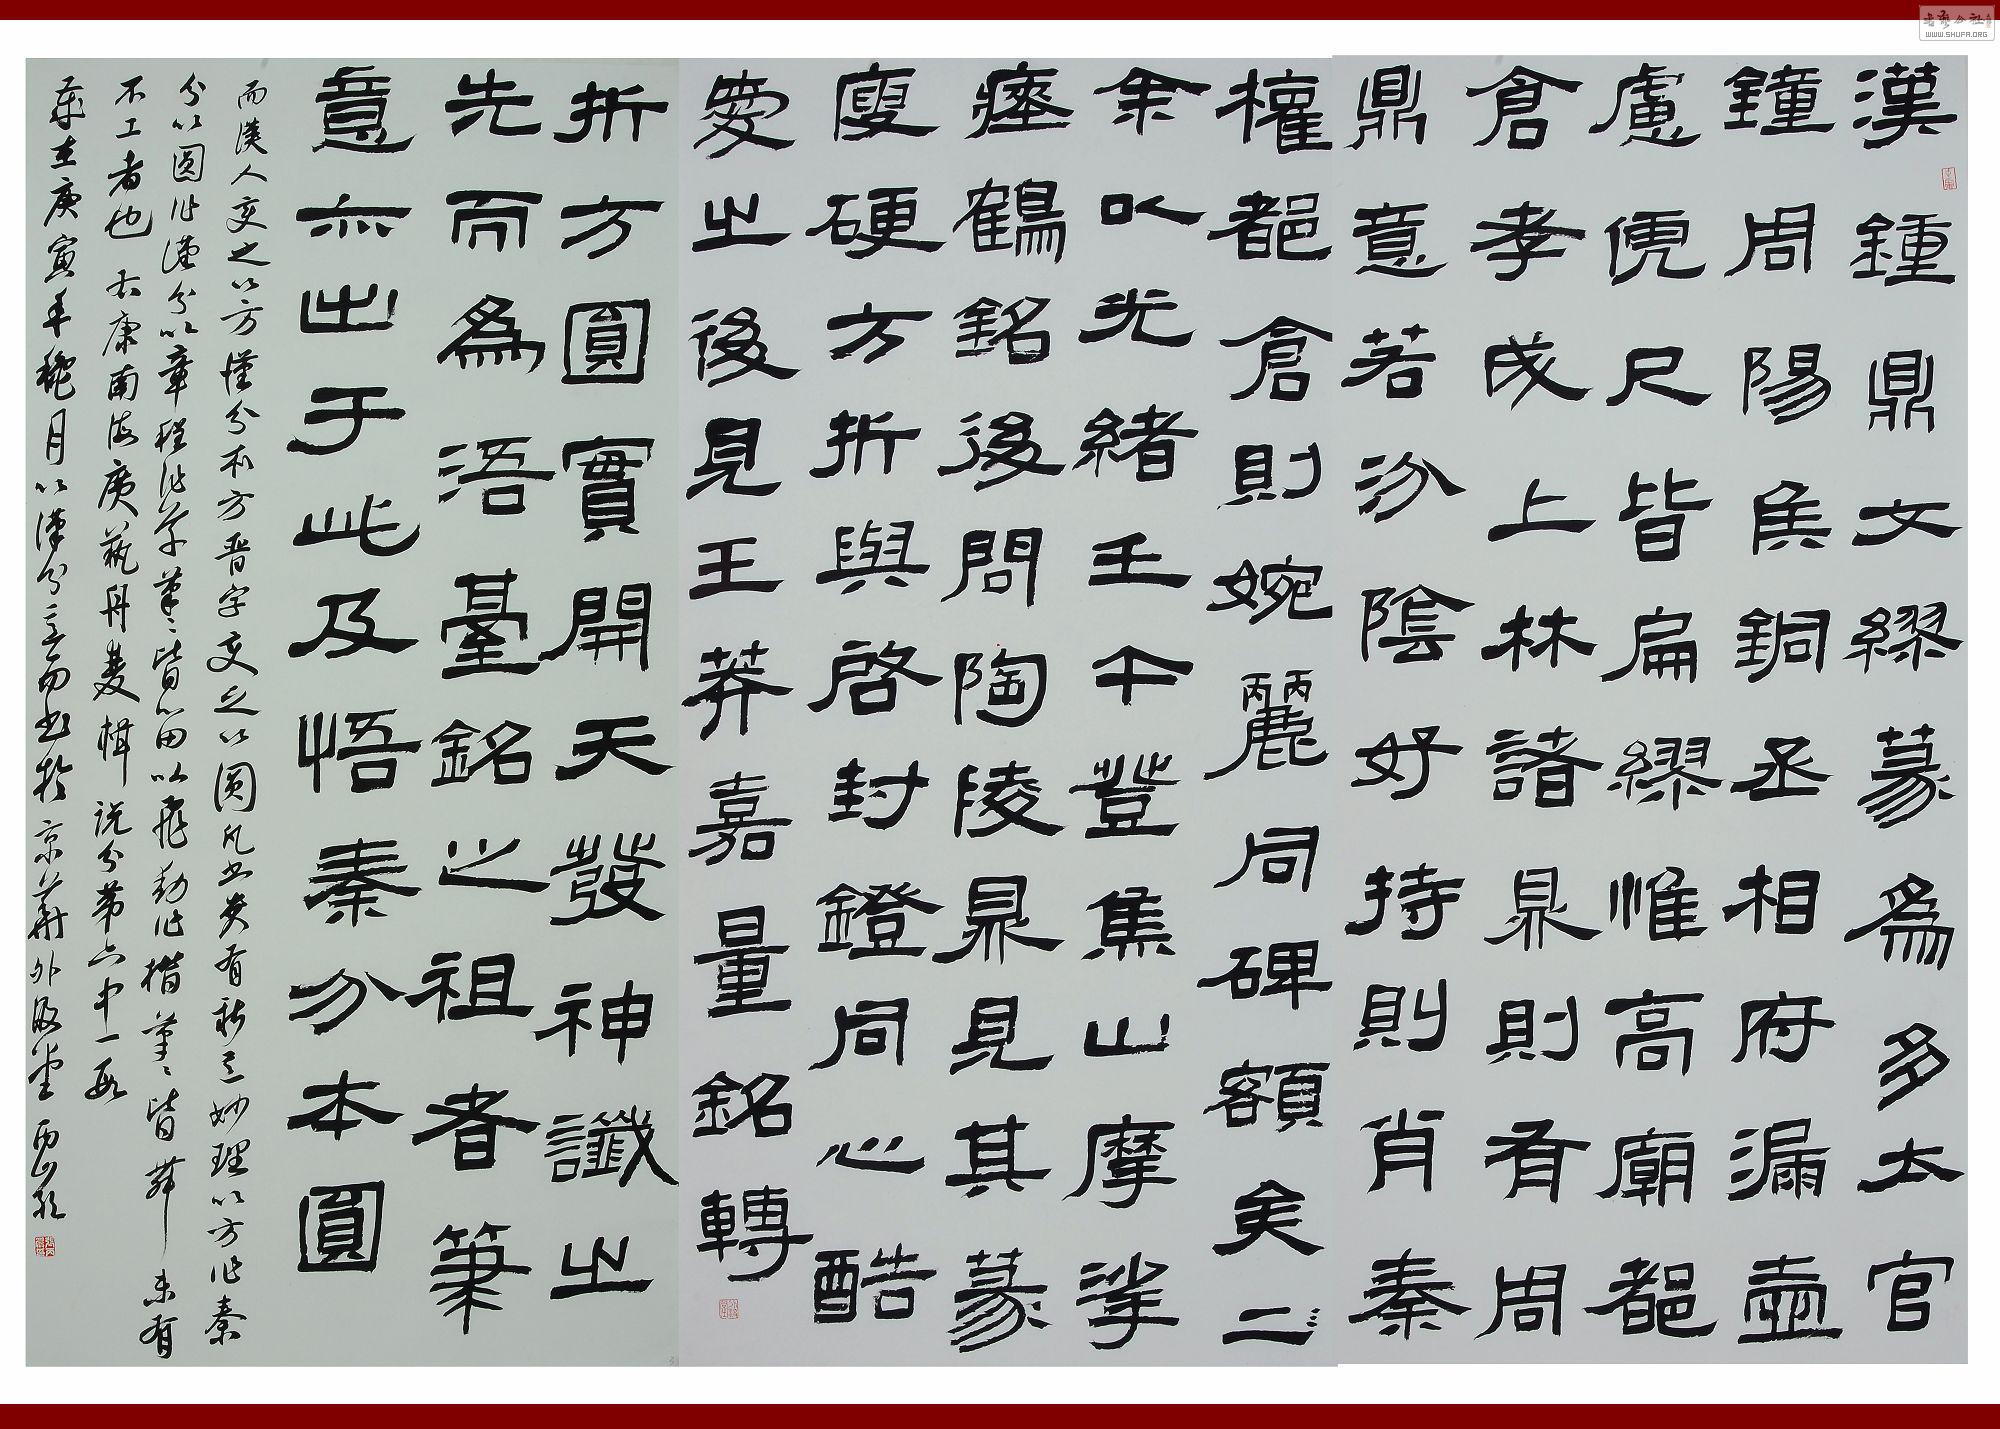 漢鍾鼎文繆篆為多太官
鐘周陽矦銅丞相府漏壺
慮俿尺皆扁繆惟高廟都
倉孝成上林諸鼎則有周
鼎意若汾陰好持則肖秦
權都倉則婉麗同碑額矣二
余以光緒壬午登焦山摩挲
瘞鶴銘後問陶陵鼎見其篆
廋硬方折與啓封鐙同心酷
愛之後見王莽嘉量銘轉
折方圓實開天發神讖之
先而為浯臺銘之祖者筆
意亦出于此及悟秦分本圓
而漢人變之以方漢分本方晋字變之以圓凡書貴有新意妙理以方作秦
分以圓作漢分以章程作草筆筆皆留以飛動作楷筆筆皆舞未有
不工者也 右康南海廣藝舟雙楫說分第六中一段
歲在庚寅年 月以漢分意為書於京華外
WWW.SHUFA.ORG